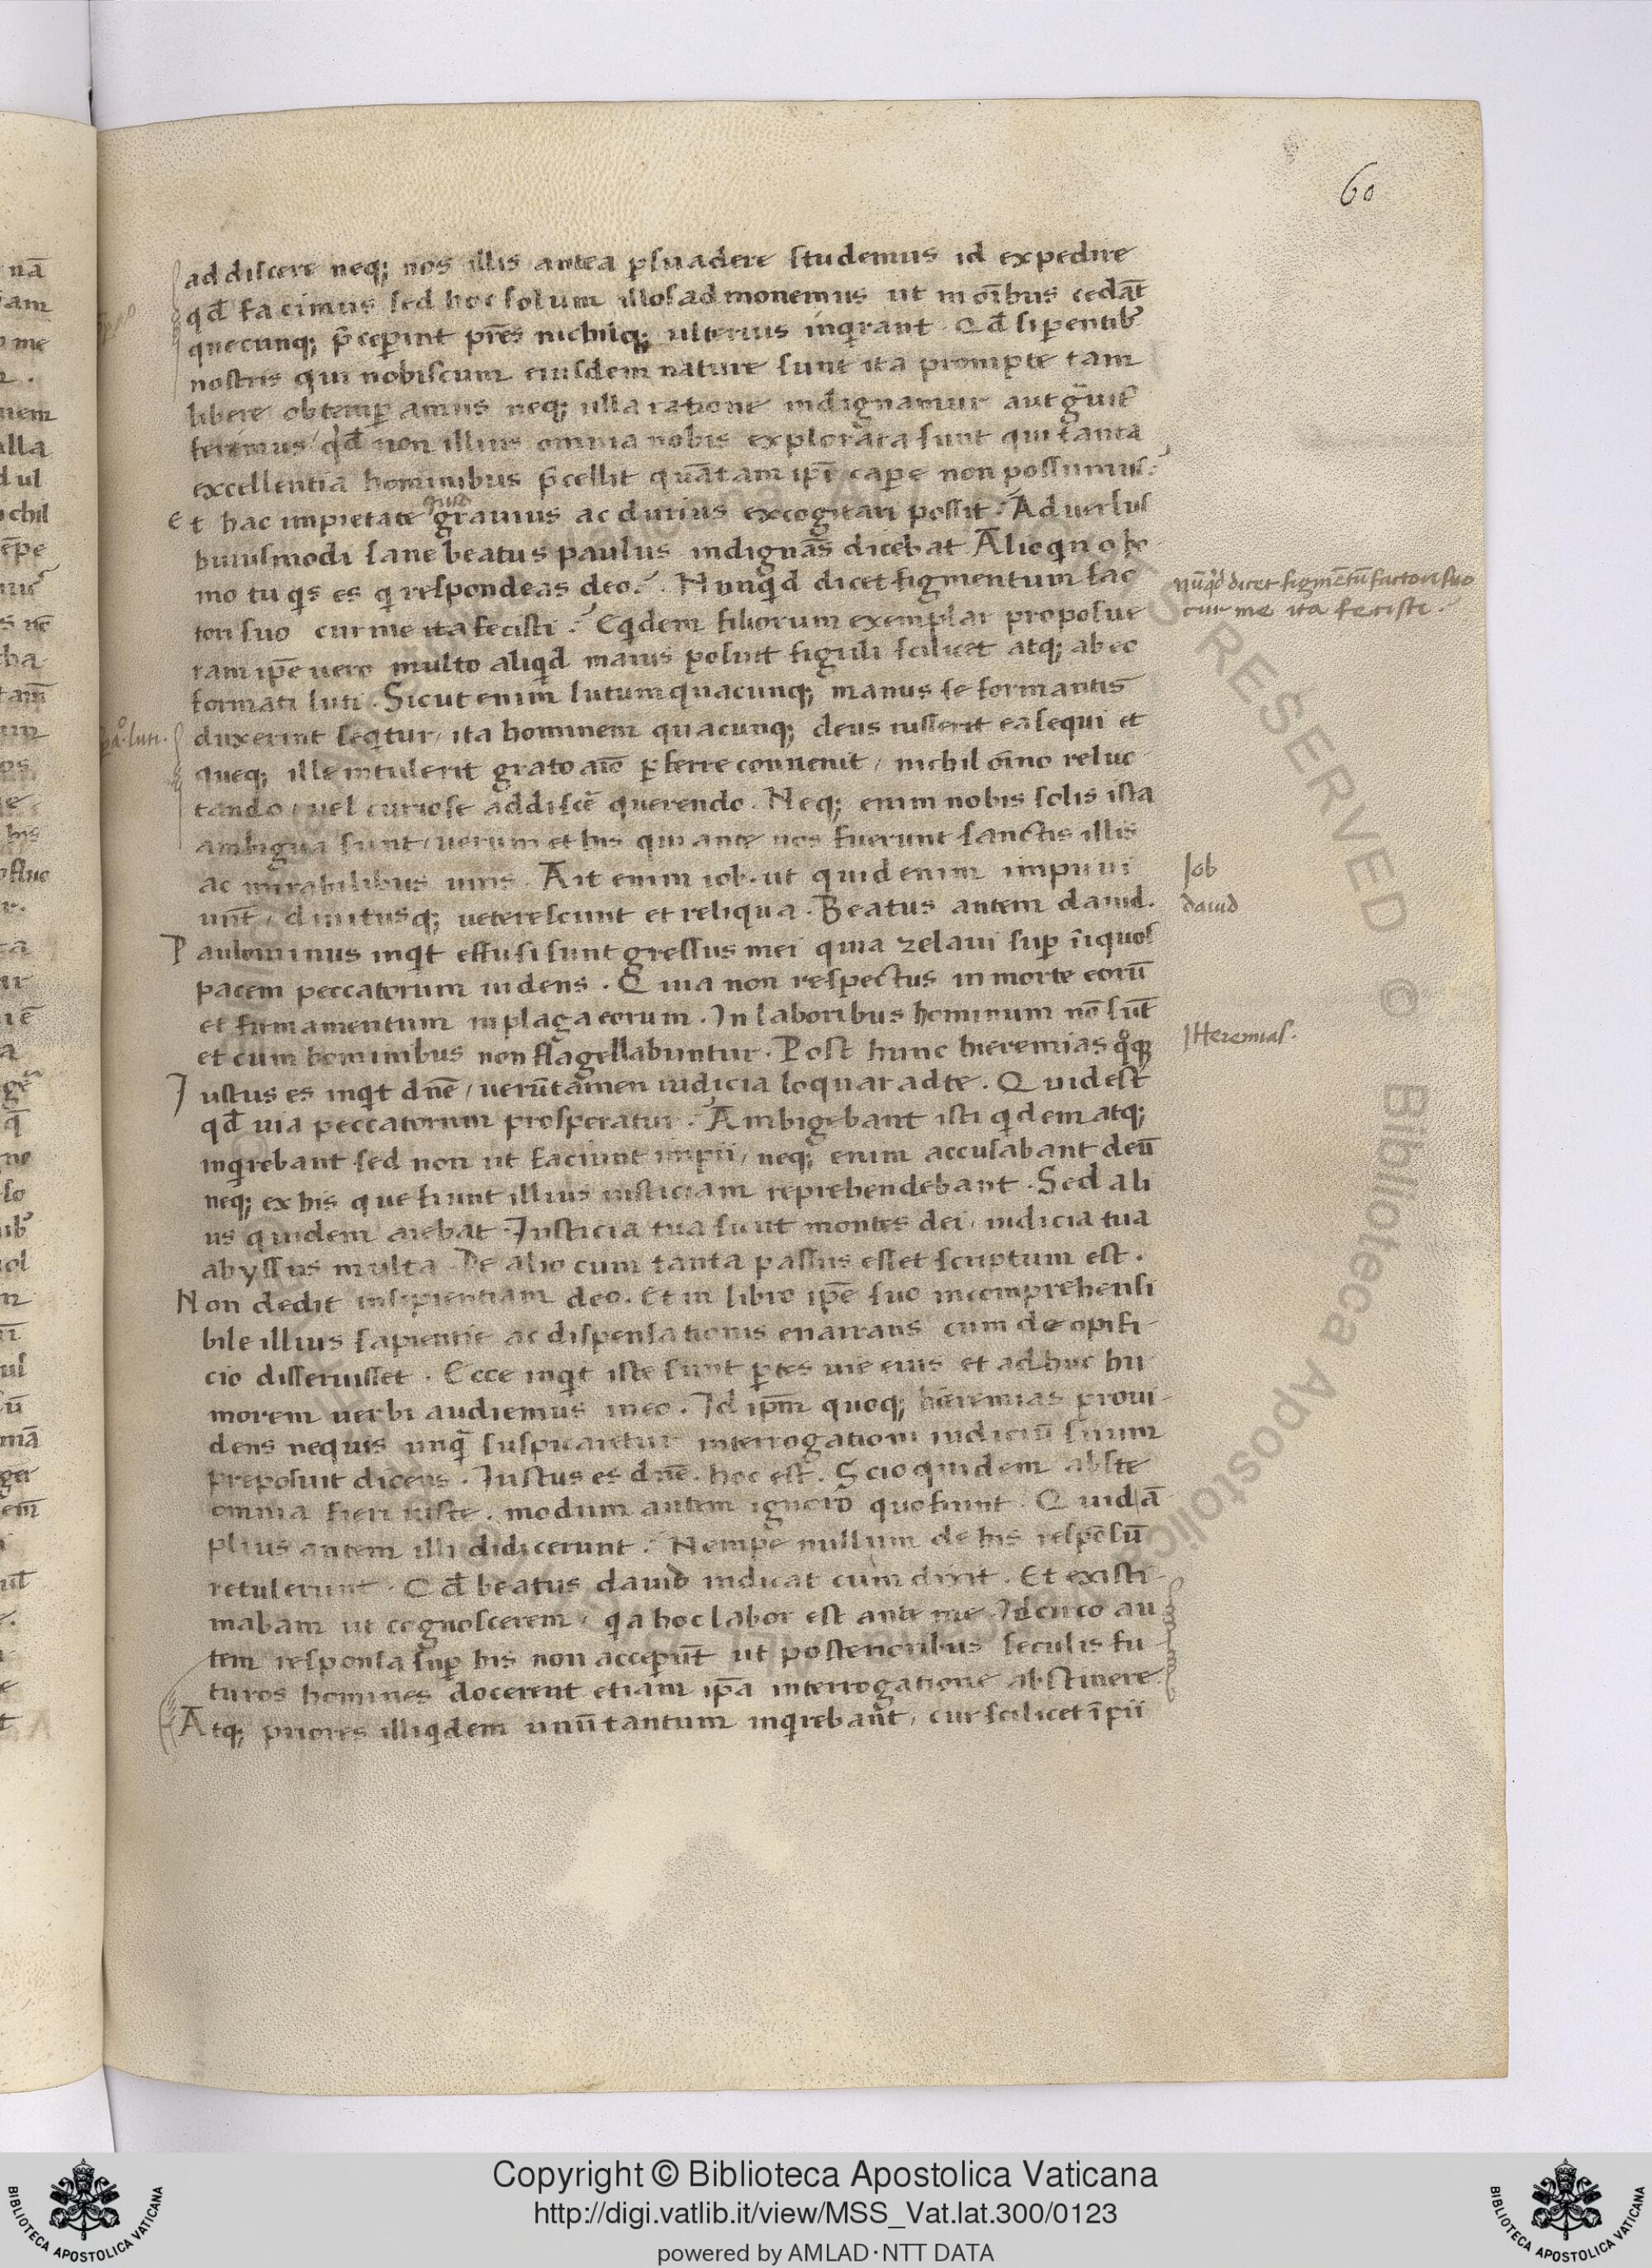 60
addiscere neq; nos illis antea ꝑsuadere studemus id expedire
qd̄ facimus sed hoc solum illos admonemus ut in oībus cedāt
quecunq; p̄ceꝑint pr̄es nichilq; ulterius inqͥrant. Qd̄ si parentibꝰ
nostris qui nobiscum eiusdem nature sunt ita prompte tam
libere obtemꝑamus neq; ulla ratione indignamur aut gͣuit᷑
feremus / qd̄ non illius omnia nobis explorata sunt qui tanta
excellentia hominibus p̄cellit quātam ip̄i capere non possumus?
et hac impietate quid grauius ac durius excogitari possit? Aduersus
huiusmodi sane beatus paulus indignās dicebat Alioqͥn o ho-
mo tu qͥs es qͥ respondeas deo? Nunqͥd dicet figmentum fac
tori suo cur me ita fecisti? Eqͥdem filiorum exemplar proposue
ram ip̄e uero multo aliqͥd maius posuit figuli scilicet atq; ab eo
formati luti. Sicut enim lutum quacunq; manus se formantis
duxerint seqͥtur, ita hominem quacunq; deus iusserit ea sequi et
queq; ille intulerit grato aīo ꝑferre conuenit, nichil oīno reluc
tando, uel curiose addiscē querendo. Neq; enim nobis solis ista
ambigua sunt, uerum et his qui ante nos fuerunt sanctis illis
ac mirabilibus uiris. Ait enim iob. ut quid enim impii ui
unt, diuitusq; ueterescunt et reliqua. Beatus autem dauid.
Paulominus inqͥt effusi sunt gressus mei quia zelaui suꝑ īiquos
pacem peccatorum uidens. Quia non respectus in morte eorū
et firmamentum in plaga eorum. In laboribus hominum nō sūt
et cum hominibus non flagellabuntur. Post hunc hieremias qͦqꝫ
Iustus es inqͥt dn̄e, uerūtamen iudicia loquar ad te. Quid est
qd̄ uia peccatorum prosperatur? Ambigebant isti qͥdem atq;
inqͥrebant sed non ut faciunt impii, neq; enim accusabant deū
neq; ex his que fiunt illius iusticiam reprehendebant. Sed ali
us quidem aiebat. Iusticia tua sicut montes dei, iudicia tua
abyssus multa. De alio cum tanta passus esset scriptum est.
Non dedit insipientiam deo. Et in libro ip̄e suo incomprehensi
bile illius sapientie ac dispensationis enarrans cum de opifi-
cio disseruisset. Ecce inqͥt iste sunt ꝑtes uie eius et adhuc hu
morem uerbi audiemus in eo. Id ip̄m quoq; hieremias proui-
dens nequis unqͣ suspicaretur interrogationi iudiciū suum
preposuit dicens. Iustus es dn̄e. hoc est. Scio quidem abste
omnia fieri iuste. modum autem ignoro quo fiunt. Quid ā
plius autem illi didicerunt? Nempe nullum de his respōsū
retulerunt. Qd̄ beatus dauid indicat cum dixit. Et existi-
mabam ut cognoscerem, qͥa hoc labor est ante me. Idcirco au
tem responsa suꝑ his non acceꝑūt ut posterioribus seculis fu
turos homines docerent etiam ip̄a interrogatione abstinere.
Atq; priores illi qͥdem unū tantum inqͥrebant, cur scilicet īpii
nūqͥd dicet figmētū factori suo
cur me ita fecisti?
Iob
dauid
Hieremias.
Copyright © Biblioteca Apostolica Vaticana
http://digi.vatlib.it/view/MSS_Vat.lat.300/0123
powered by AMLAD·NTT DATA
BIBLIOTECA APOSTOLICA VATICANA
BIBLIOTECA APOSTOLICA VATICANA